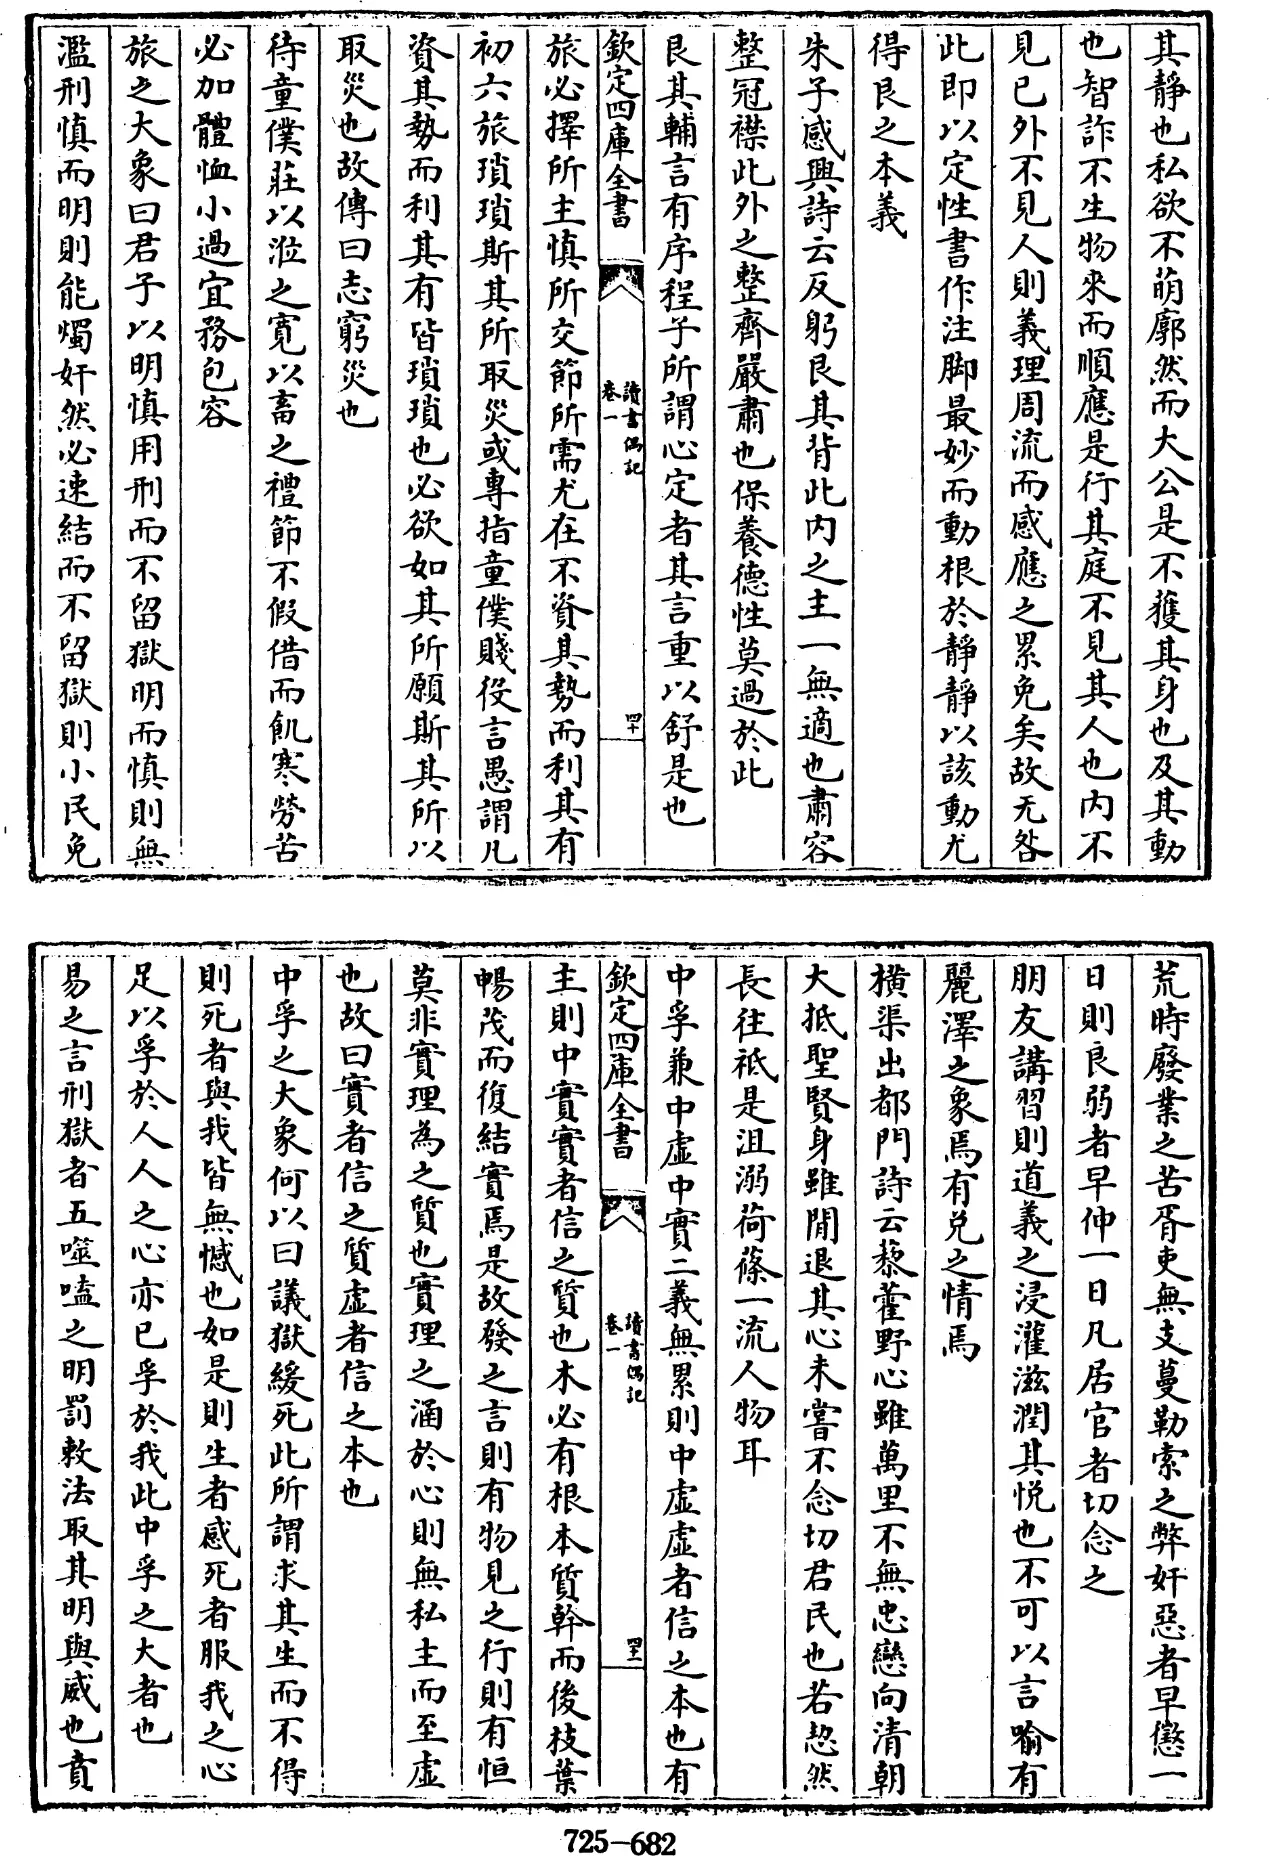 其靜也私欲不萌廓然而大公是不獲其身也及其動
也智詐不生物來而順應是行其庭不見其人也內不
見已外不見人則義理周流而感應之累免矣故无咎
此即以定性書作注脚最妙而動根於靜靜以該動尤
得艮之本義
朱子感興詩云反躬艮其背此內之主一無適也肅容
整冠襟此外之整齊嚴肅也保養德性莫過於此
艮其輔言有序程子所謂心定者其言重以舒是也
欽定四庫全書
讀書偶記
卷一
四十
旅必擇所主慎所交節所需尤在不資其勢而利其有
初六旅瑣瑣斯其所取災或專指童僕賤役言愚謂凡
資其勢而利其有皆瑣瑣也必欲如其所願斯其所以
取災也故傳曰志窮災也
待童僕莊以涖之寬以畜之禮節不假借而飢寒勞苦
必加體恤小過宜務包容
旅之大象曰君子以明慎用刑而不留獄明而慎則無
濫刑慎而明則能燭奸然必速結而不留獄則小民免
荒時廢業之苦胥吏無支蔓勒索之弊奸惡者早懲一
日則良弱者早伸一日凡居官者切念之
朋友講習則道義之浸灌滋潤其悅也不可以言喻有
麗澤之象焉有兌之情焉
橫渠出都門詩云藜藿野心雖萬里不無忠戀向清朝
大抵聖賢身雖閒退其心未嘗不念切君民也若恝然
長往祇是沮溺荷蓧一流人物耳
中孚兼中虛中實二義無累則中虛虛者信之本也有
欽定四庫全書
讀書偶記
卷一
四十一
主則中實實者信之質也木必有根本質幹而後枝葉
暢茂而復結實焉是故發之言則有物見之行則有恒
莫非實理為之質也實理之涵於心則無私主而至虛
也故曰實者信之質虛者信之本也
中孚之大象何以曰議獄緩死此所謂求其生而不得
則死者與我皆無憾也如是則生者感死者服我之心
足以孚於人人之心亦已孚於我此中孚之大者也
易之言刑獄者五噬嗑之明罰敕法取其明與威也賁
725-682